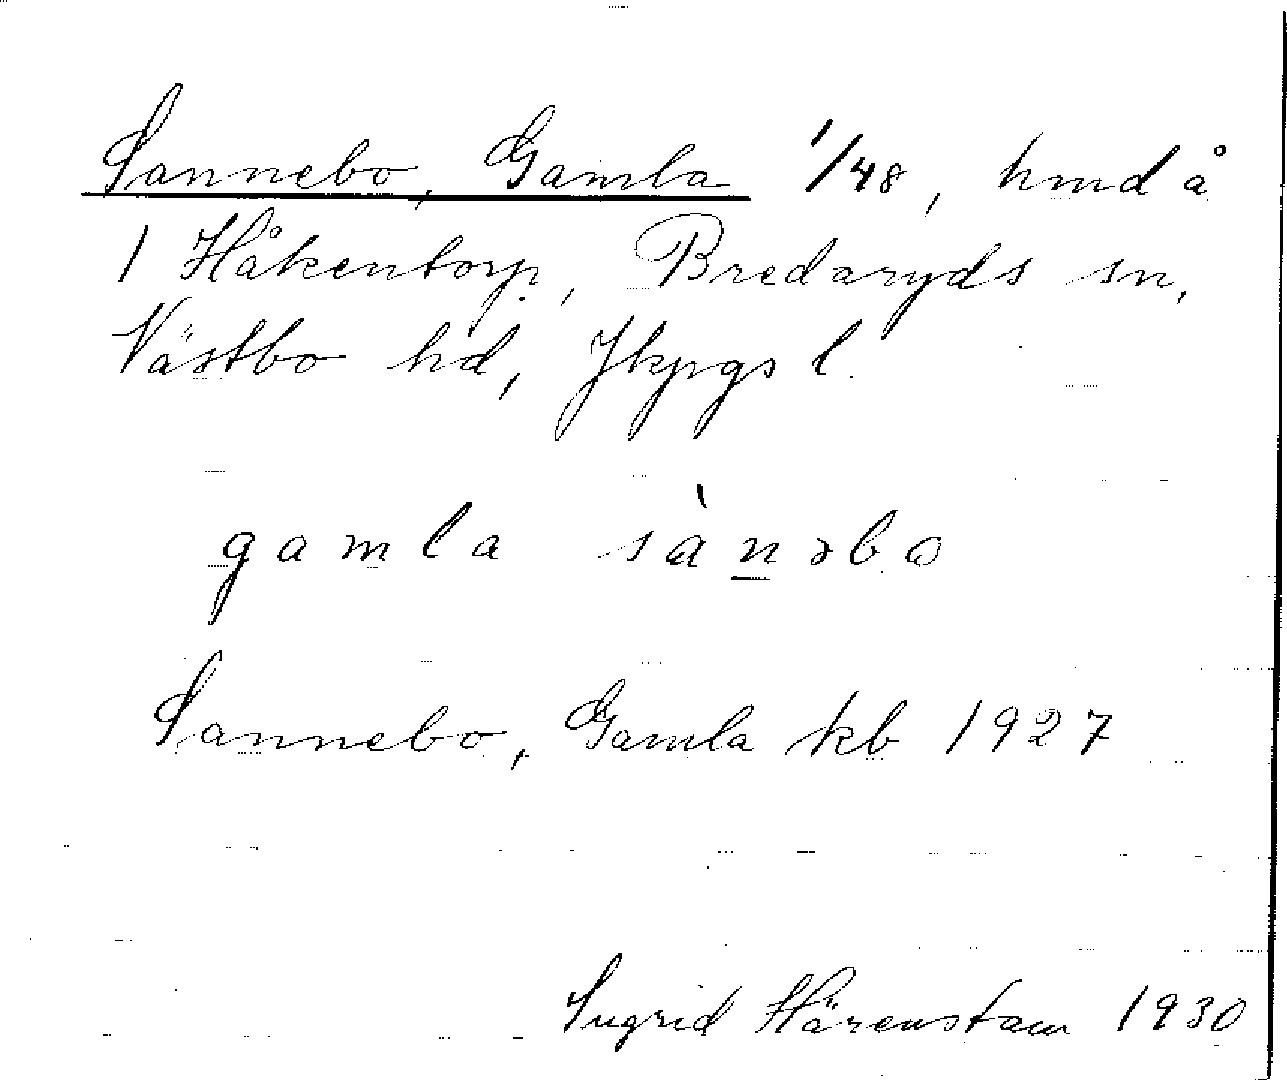 Sannebo, Gamla 1/48, hmd å
1 Håkentorp, Bredaryds sn,
Västbo hd, Jkpgs l.
gamla sàn̲əbo
Sannebo, Gamla kb 1927
Ingrid Härenstam 1930